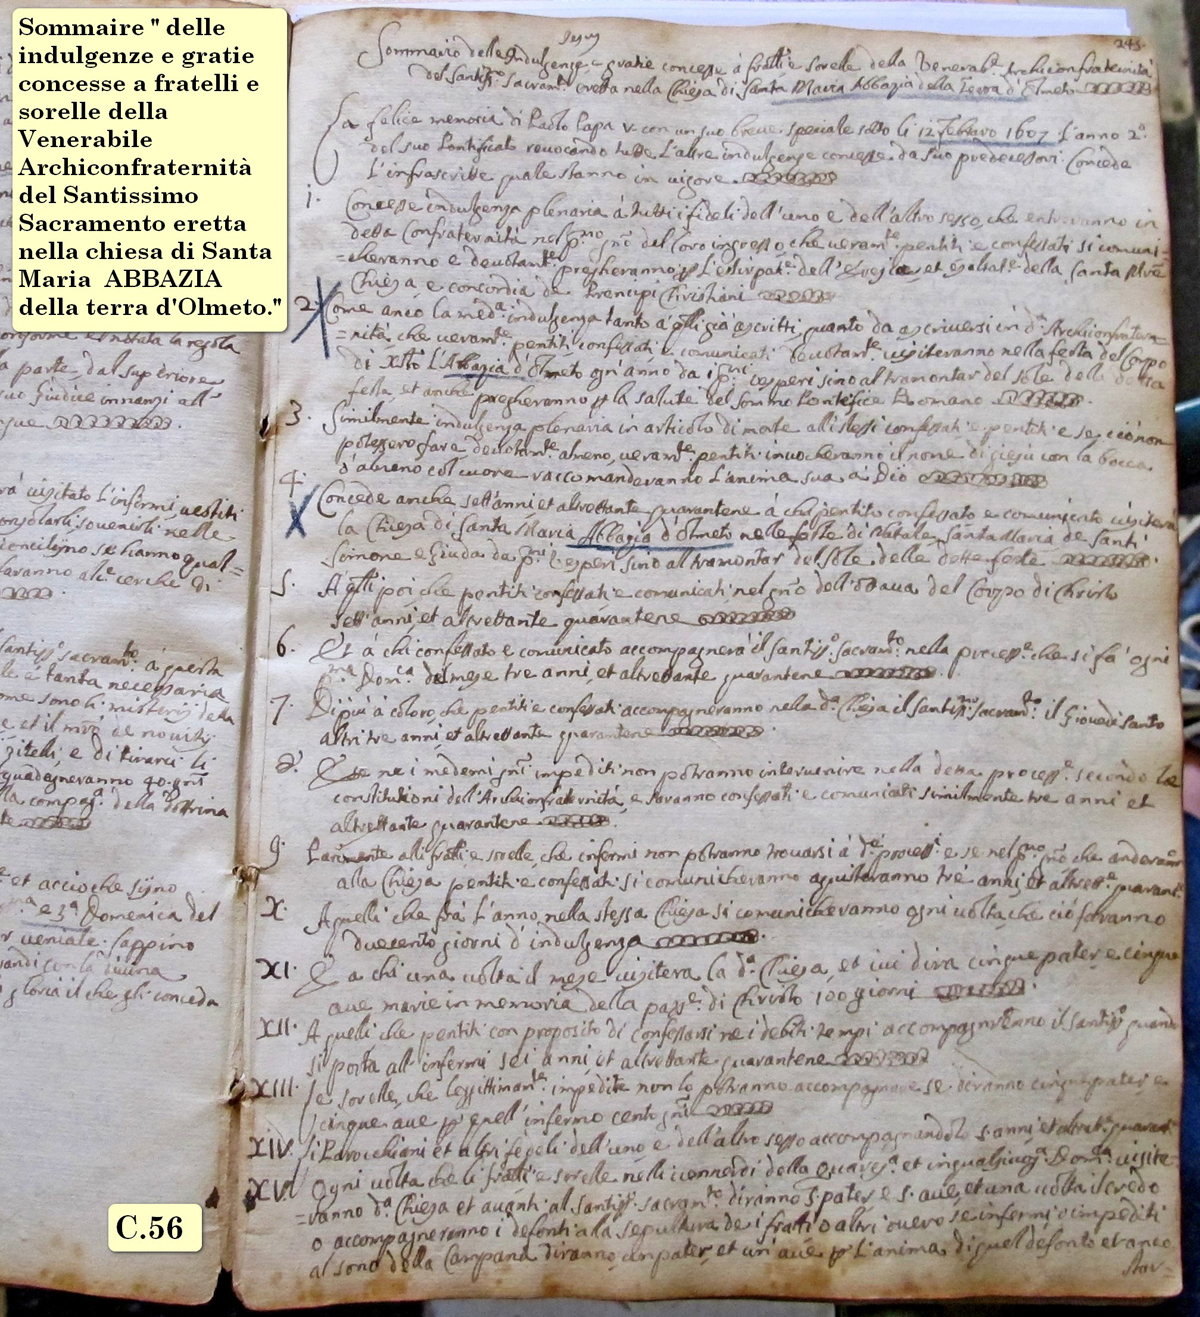 Sommaire " delle
indulgenze e gratie
concesse a fratelli e
sorelle della
Venerabile
Archiconfraternità
del Santissimo
Sacramento eretta
nella chiesa di Santa
Maria ABBAZIA
della terra d'Olmeto."
C.56
conforme è notata la regola
parte dal superiore
Giudice innanzi all'
visitato l'infermi vestiti
consolarli, sovenirli nelle
hanno qual=
faranno cerche di
santiss.º sacram.to à questa
è tanta necessaria
sono li misterij della
et il de novitij
zitelli, e di tirarci li
guadagneranno 40. gni
compag.ª della dottrina
et accioche sijno
e 3.ª Domenica del
veniale. Sappino
divina
gloria il che gli conceda
245.
Jesus
Sommario delle Indulgenze e gratie concesse à fratti e sorelle della Venerab.e Archiconfraternità
del Santiss.º Sacram.to eretta nella Chiesa di Santa Maria Abbazia della Terra d'Olmeto
La felice memoria di Paolo Papa V. con un suo breve speciale sotto li 12 febraro 1607 l'anno 2.º
del suo Pontificato revocando tutte l'altre indulgenze concesse da suoi predecessori Concede
l'infrascritte quale stanno in vigore
1. Concesse indulgenza plenaria à tutti i fideli dell'uno e dell'altro sesso, che entreranno in
detta Confraternità nel p.mo gno del loro ingresso, che veram.te pentiti e confessati si comuni=
=cheranno e devotam.te pregheranno p l'estirpat.e dell'Eresie et esaltat.e della Santa Mre
Chiesa e concordia de Prencipi Christiani
2. Come anco la med.a indulgenza tanto à qlli già ascritti, quanto da ascriversi in d.a Archiconfrater=
=nità, che veram.te pentiti, confessati e comunicati devotam.te visiteranno nella festa del Corpo
di Xsto l'Abbazia d'Olmeto ogn'anno da i p.mi vesperi sino al tramontar del sole della detta
festa, et anche pregheranno p la salute del sommo Pontefice Romano
3. Similmente indulgenza plenaria in articolo di morte alli stessi confessati e pentiti e se ciò non
potessero fare devotam.te almeno, veram.te pentiti invocheranno il nome di Giesù con la bocca
ò almeno col cuore raccomanderanno l'anima sua à Dio
4. Concede anche sett'anni et altrettante quarantene à chi pentito confessato e comunicato visitera
la Chiesa di Santa Maria Abbazia d'Olmeto nelle feste di Natale, Santa Maria de Santi
Simone e Giuda da p.mi Vesperi sino al tramontar del sole delle dette feste
5. A qlli poi che pentiti confessati e comunicati nel gno dell'ottava del Corpo di Christo
sett'anni et altrettante quarantene
6. Et à chi confessato e comunicato accompagnerà il santiss.º sacram.to nella process.e che si fà ogni
p.ma Dom.ca del mese tre anni, et altrettante quarantene
7. Di più à coloro, che pentiti e confessati accompagneranno nella d.a Chiesa il santiss.mo sacram.to il Giovedi santo
altri tre anni et altrettante quarantene
8. E se ne i medemi gni impediti non potranno intervenire nella detta process.e secondo le
constitutioni dell'Archiconfraternità, e saranno confessati e comunicati similmente tre anni et
altrettante quarantene
9. Parimente alli fratti e sorelle che infermi non potranno trovarsi à d.e process.i e se nel p.mo gno che anderanno
alla Chiesa pentiti e confessati si comunicheranno tre anni, et altrett.e quarant.e
X. A quelli che frà l'anno, nella stessa Chiesa si comunicheranno ogni volta, che ciò faranno
duecento giorni d'indulgenza
XI. E a chi una volta il mese visiterà la d.a Chiesa, et ivi dirà cinque pater e cinque
ave marie in memoria della pass.e di Christo 100 giorni
XII. A quelli che pentiti con proposito di confessarsi ne i debiti tempi accompagneranno il santiss.º quando
si porta all'infermi sei anni, et altrettante quarantene
XIII. Le sorelle, che legittimam.te impedite non lo potranno accompagnare se diranno cinque pater e
cinque ave p quell'infermo cento gni
XIV. Li Parocchiani et altri fedeli dell'uno e dell'altro sesso accompagnandolo 5. anni, et altrett.e quarant.e
XV. Ogni volta che li fratti e sorelle nelli vennerdi della Quares.a et in Dom.ca visite=
=ranno d.a Chiesa et avanti al santiss.º sacram.to diranno 5. pater e 5. ave, et una volta il credo
o accompagneranno i defonti alla sepultura de i fratti o altri overo se infermi o impediti
al sono della Campana diranno un pater, et un'ave p l'anima di quel defonto et anco